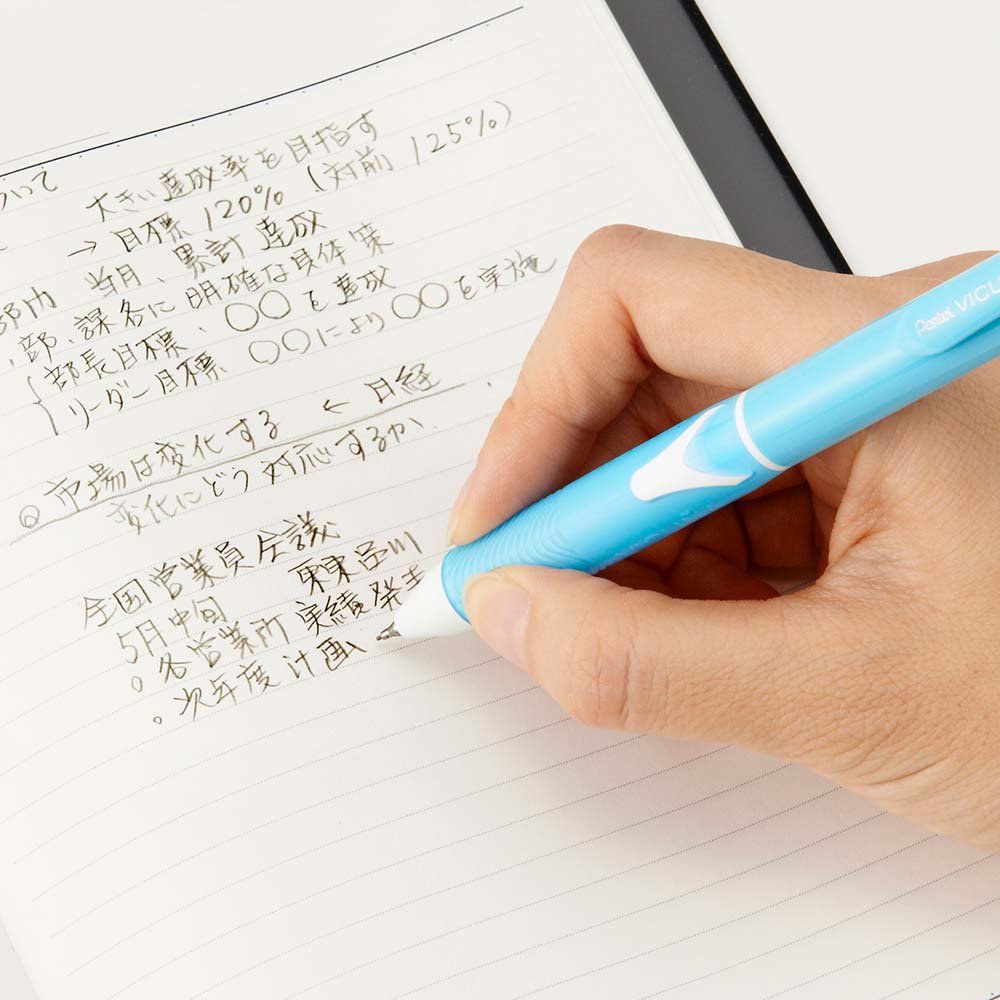 ついて
大きい達成率を目指す
→ 目標 120% (対前 125%)
部内 当月、累計 達成
部、課各に明確な具体策
部長目標、〇〇を達成
リーダー目標 〇〇により〇〇を実施
◎市場は変化する ← 日経
変化にどう対応するか、
全国営業員会議
5月中旬 東京品川
。各営業所 実績発表
。次年度計画
Pentel VICU